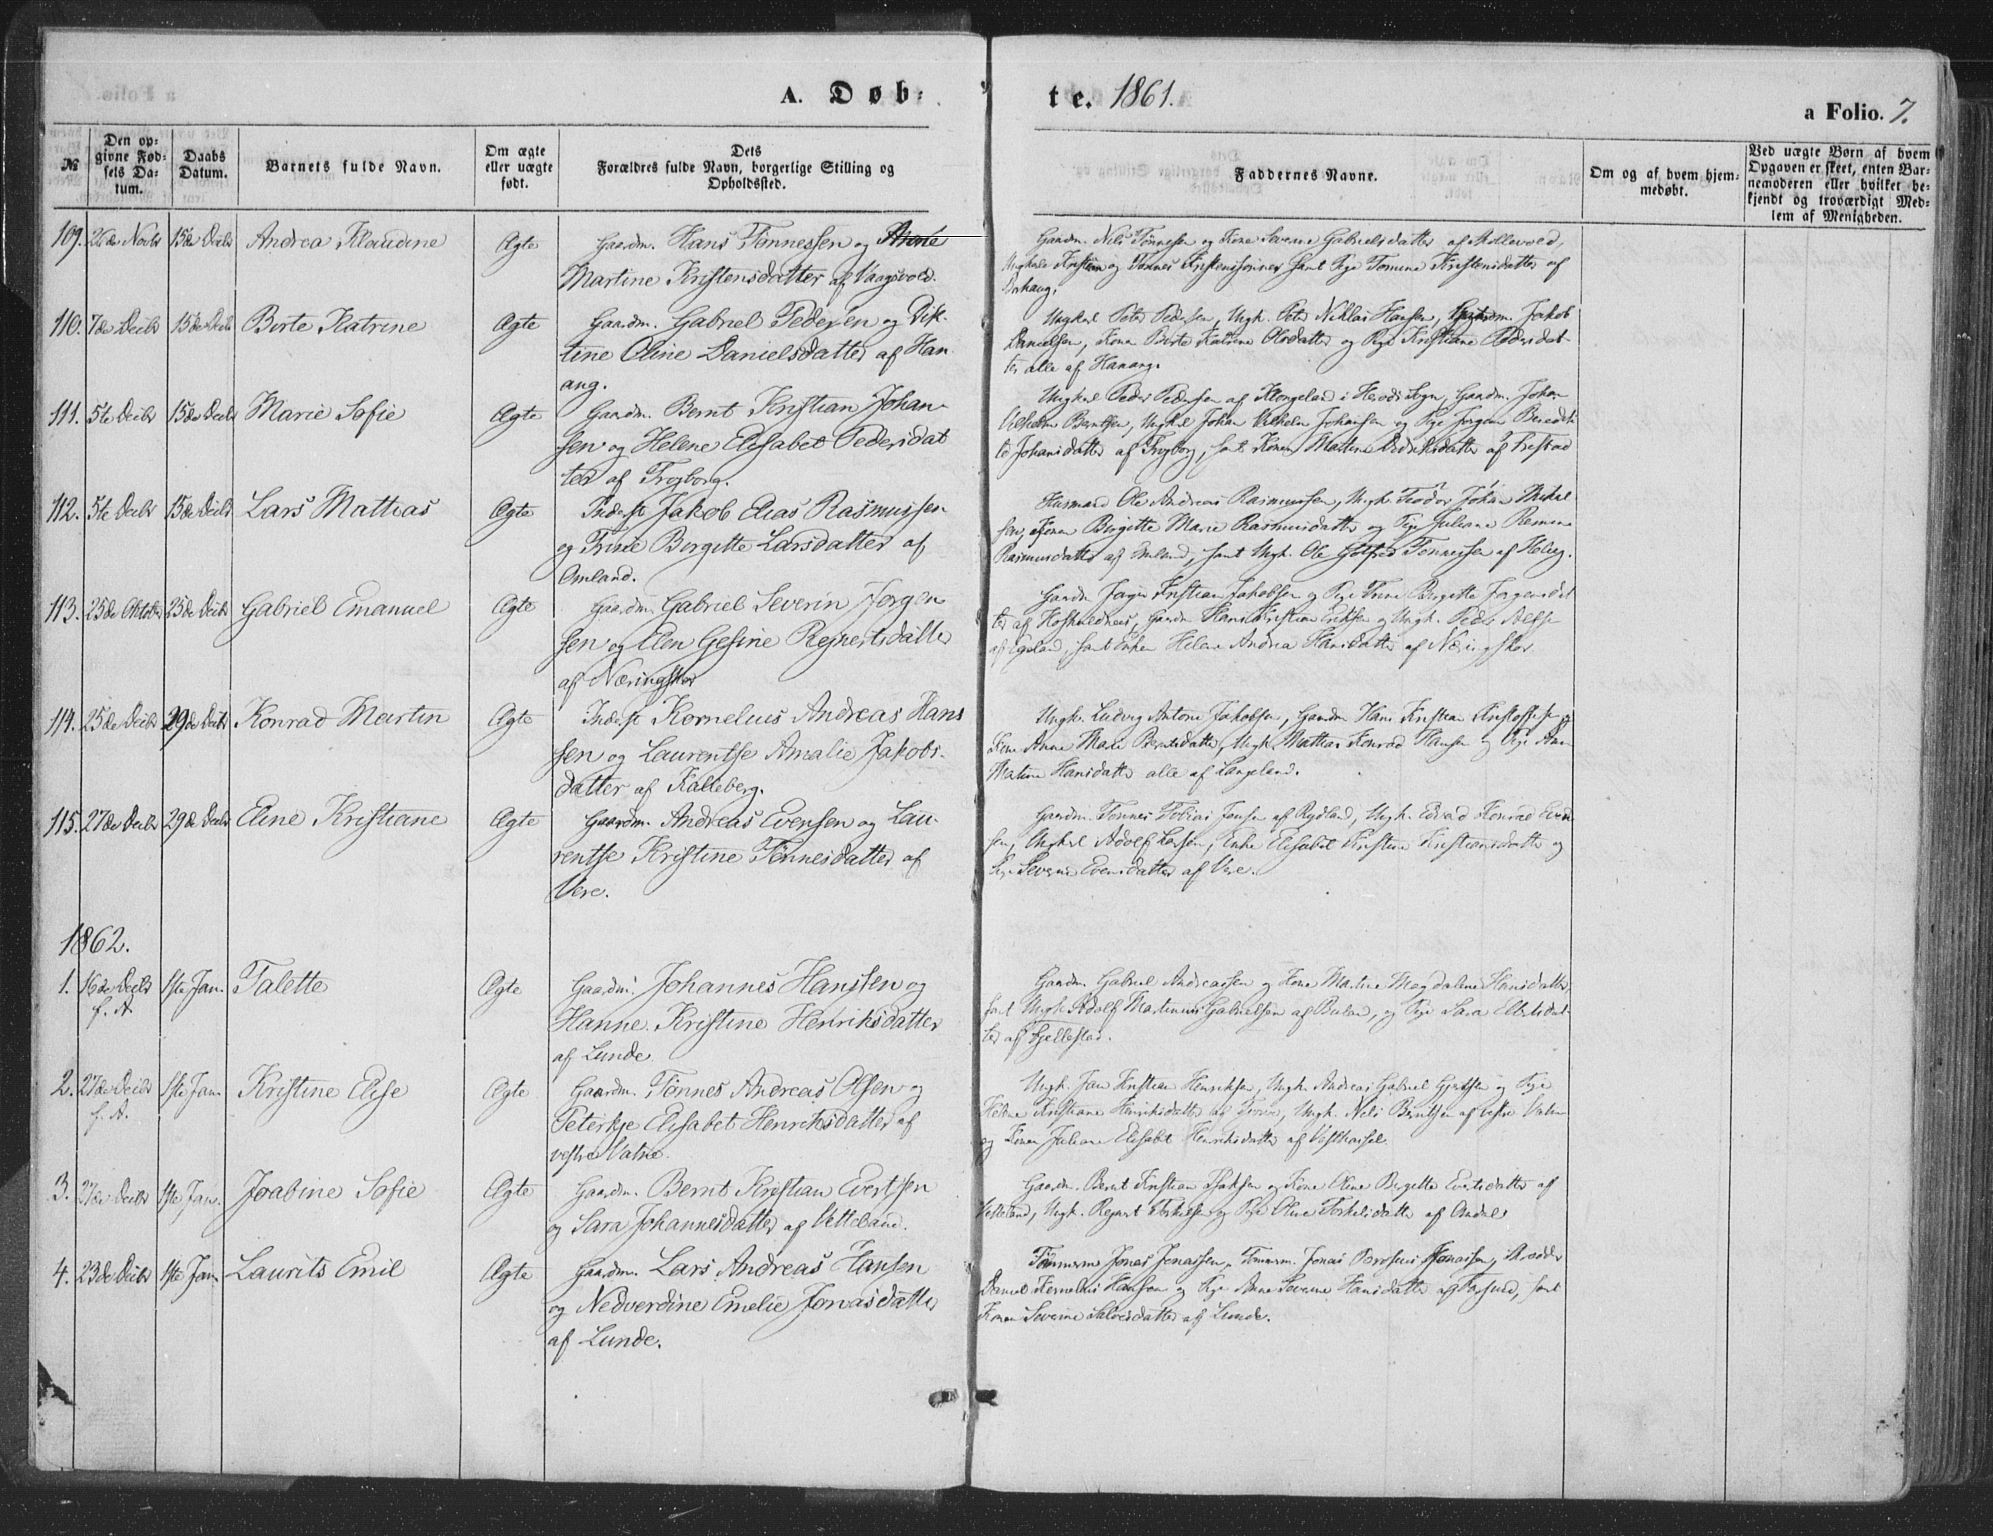 A. Døb-
te. 1861.
a Folio. 7.
№
Den op-
givne Fød-
sels Da-
tum.
Daabs
Datum.
Barnets fulde Navn.
Om ægte
eller uægte
født.
Dets
Forældres fulde Navn, borgerlige Stilling og
Opholdssted.
Faddernes Navne.
Om og af hvem hjem-
medøbt.
Ved uægte Børn af hvem
Opgaven er skeet, enten Bar-
nemoderen eller hvilket be-
kjendt og troværdigt Med-
lem af Menigheden.
109. 26de Novbr 15de Decbr Andrea Klaudine Ægte Gaardm. Hans Tønnessen og
Martine Kristensdatter af Vaagsvold.
Gaardm. Nils Tønnesen og Kone Severine Gabrielsdatter af
Ungkarle Kristian og Tønnes Kristenssønner samt Pige Tomine Kristensdatter af
110. 7de Decbr 15de Decbr Berte Katrine Ægte Gaardm. Gabriel Pedersen og
tine Oline Danielsdatter af Han-
ang.
Ungkarl Peder Pedersen, Ungk. Peder Niklas Hansen, Jakob
Danielsen, Kone Berte Katrine Olsdatter og Pige Kristiane Pedersdat-
ter alle af Hanang.
111. 5te Decbr 15de Decbr Marie Sofie Ægte Gaardm. Bernt Kristian Johan-
sen og Helene Elisabet Pedersdat
ter af Frøyborg.
Ungkarl Peder Pedersen af Klongeland i Herads Sogn, Gaardm. Johan
Vilhelm Berntsen, Ungkarl Johan Vilhelm Johansen og Pige Jørgine Benedik
te Johansdatter af Frøyborg, samt Konen Martine Didriksdatter af
112. 5te Decbr 15de Decbr Lars Mattias Ægte Inderst Jakob Elias Rasmussen
og Trine Bergitte Larsdatter af
Omland.
Husmand Ole Andreas Rasmussen, Ungk. Teodor Johan Mikal
sen, Konen Birgitte Marie Rasmusdatter og Pige Juliane
Rasmusdatter af Omland, samt Ungk. Ole Gotfred Tønnesen af
113. 25de Oktober 25de Decbr Gabriel Emanuel Ægte Gaardm. Gabriel Severin Jørgen-
sen og Elen Gesine Reinertsdatter
af Næringskor
Gaardm. Jørgen Kristian Jakobsen og Pige Trine Bergitte Jørgensdat
ter af Gaardm. Hans Kristian Eriksen og Ungk. Peder
af Egeland, samt Enken Helene Andrea Hansdatter af Næringskor
114. 25de Decbr 29de Decbr Konrad Martin Ægte Inderst Kornelius Andreas Hans
sen og Laurentse Amalie Jakobs-
datter af Kalleberg.
Ungk. Ludvig Antoni Jakobsen, Gaardm. Hans Kristian
Kone Anne Marie Berntsdatter, Ungk. Mattias Konrad Hansen og Pige
Martine Hansdatter alle af Langeland.
115. 27de Decbr 29de Decbr Eline Kristiane Ægte Gaardm. Andreas Evensen og Lau-
rentse Kristine Tønnesdatter af
Vere.
Gaardm. Tønnes Tobias Jensen af Rydland, Ungk. Edvard Konrad Even
sen, Ungkarl Adolf Larsen, Enke Elisabet Kristine Kristiansdatter og
Pige Severine Evensdatter af Vere.
1862.
1. 16de Decbr 1ste Jan. Talette Ægte Gaardm. Johannes Hansen og
f. A.
Hanne Kristine Henriksdatter
af Lunde.
Gaardm. Gabriel Andreassen og Kone Martine Magdalene Hansdatter,
samt Ungk. Adolf Martinius Gabrielsen af og Pige Sara Elbertsdat-
ter af Fjellestad.
2. 27de Decbr 1ste Jan. Kristine Elise Ægte Gaardm. Tønnes Andreas Olsen og
f. A.
Peterkje Elisabet Henriksdatter af
vestre Vatne.
Ungk. Jan Kristian Henriksen, Ungk. Andreas Gabriel Gjertsen og Pige
Helene Kristiane Henriksdatter af Ungk. Nels Berntsen af vestre Vatne
og Konen Juliane Elisabet Henriksdatter af Vesthassel.
3. 27de Decbr 1ste Jan. Joabine Sofie Ægte Gaardm. Bernt Kristian Evertsen
og Sara Johannesdatter af Vetteland.
Gaardm. Bernt Kristian og Kone Oline Bergitte Evertsdatter af
Vetteland, Ungk. Reinert Torkelsen og Pige Oline Torkelsdatter af
4. 23de Decbr 1ste Jan. Laurits Emil Ægte Gaardm. Lars Andreas Hansen
og Nedverdine Emelie Jonasdatter
af Lunde.
Tømmerm. Jonas Jonassen, Tømmerm. Jonas Jonassen,
Daniel Kornelius Hansen og Pige Anne Severine Hansdatter af Farsund, samt
Konen Severine Salvesdatter af Lunde.